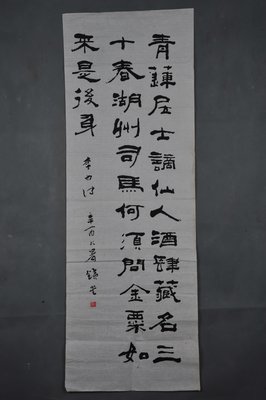 青蓮居士謫仙人酒肆藏名三
十春湖州司馬何須問金粟如
来是後身
李白诗 辛酉